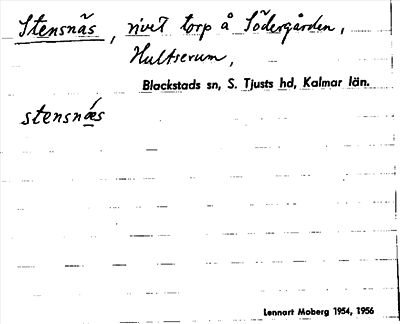 Stensnäs, rivet torp å Södergården,
Hultserum,
Blackstads sn, S. Tjusts hd, Kalmar län.
stensnæ̀s
Lennart Moberg 1954, 1956